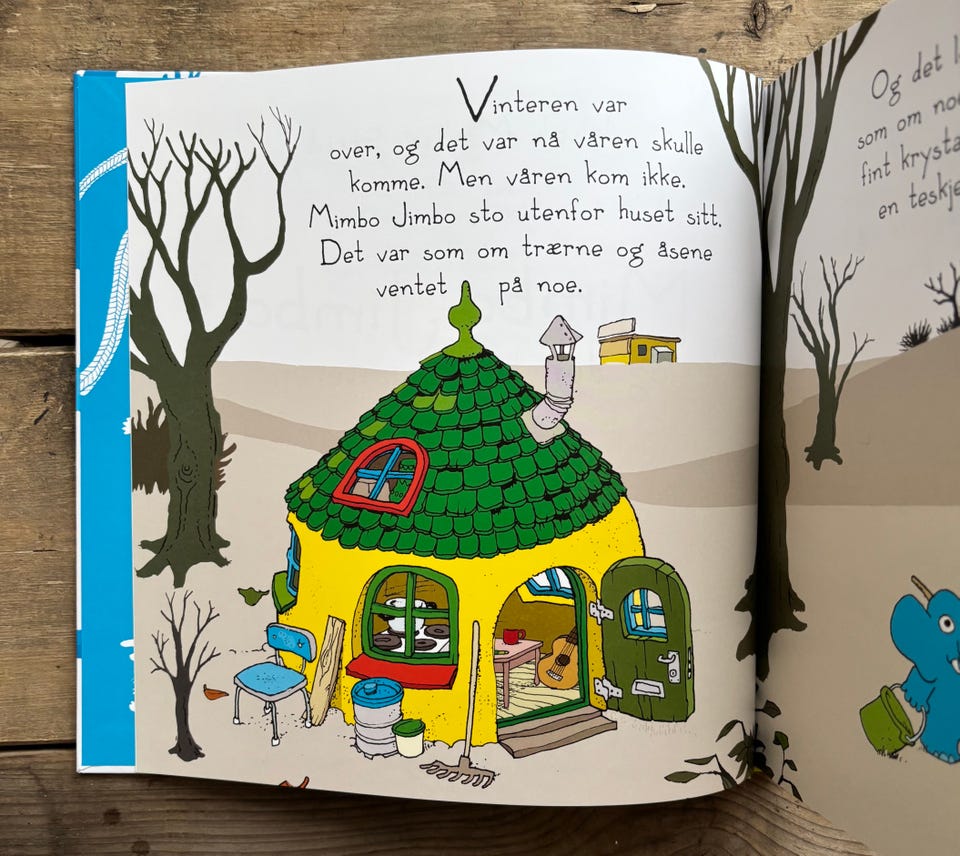 Vinteren var
over, og det var nå våren skulle
komme. Men våren kom ikke.
Mimbo Jimbo sto utenfor huset sitt.
Det var som om trærne og åsene
ventet på noe.
Og det
som om
fint
en